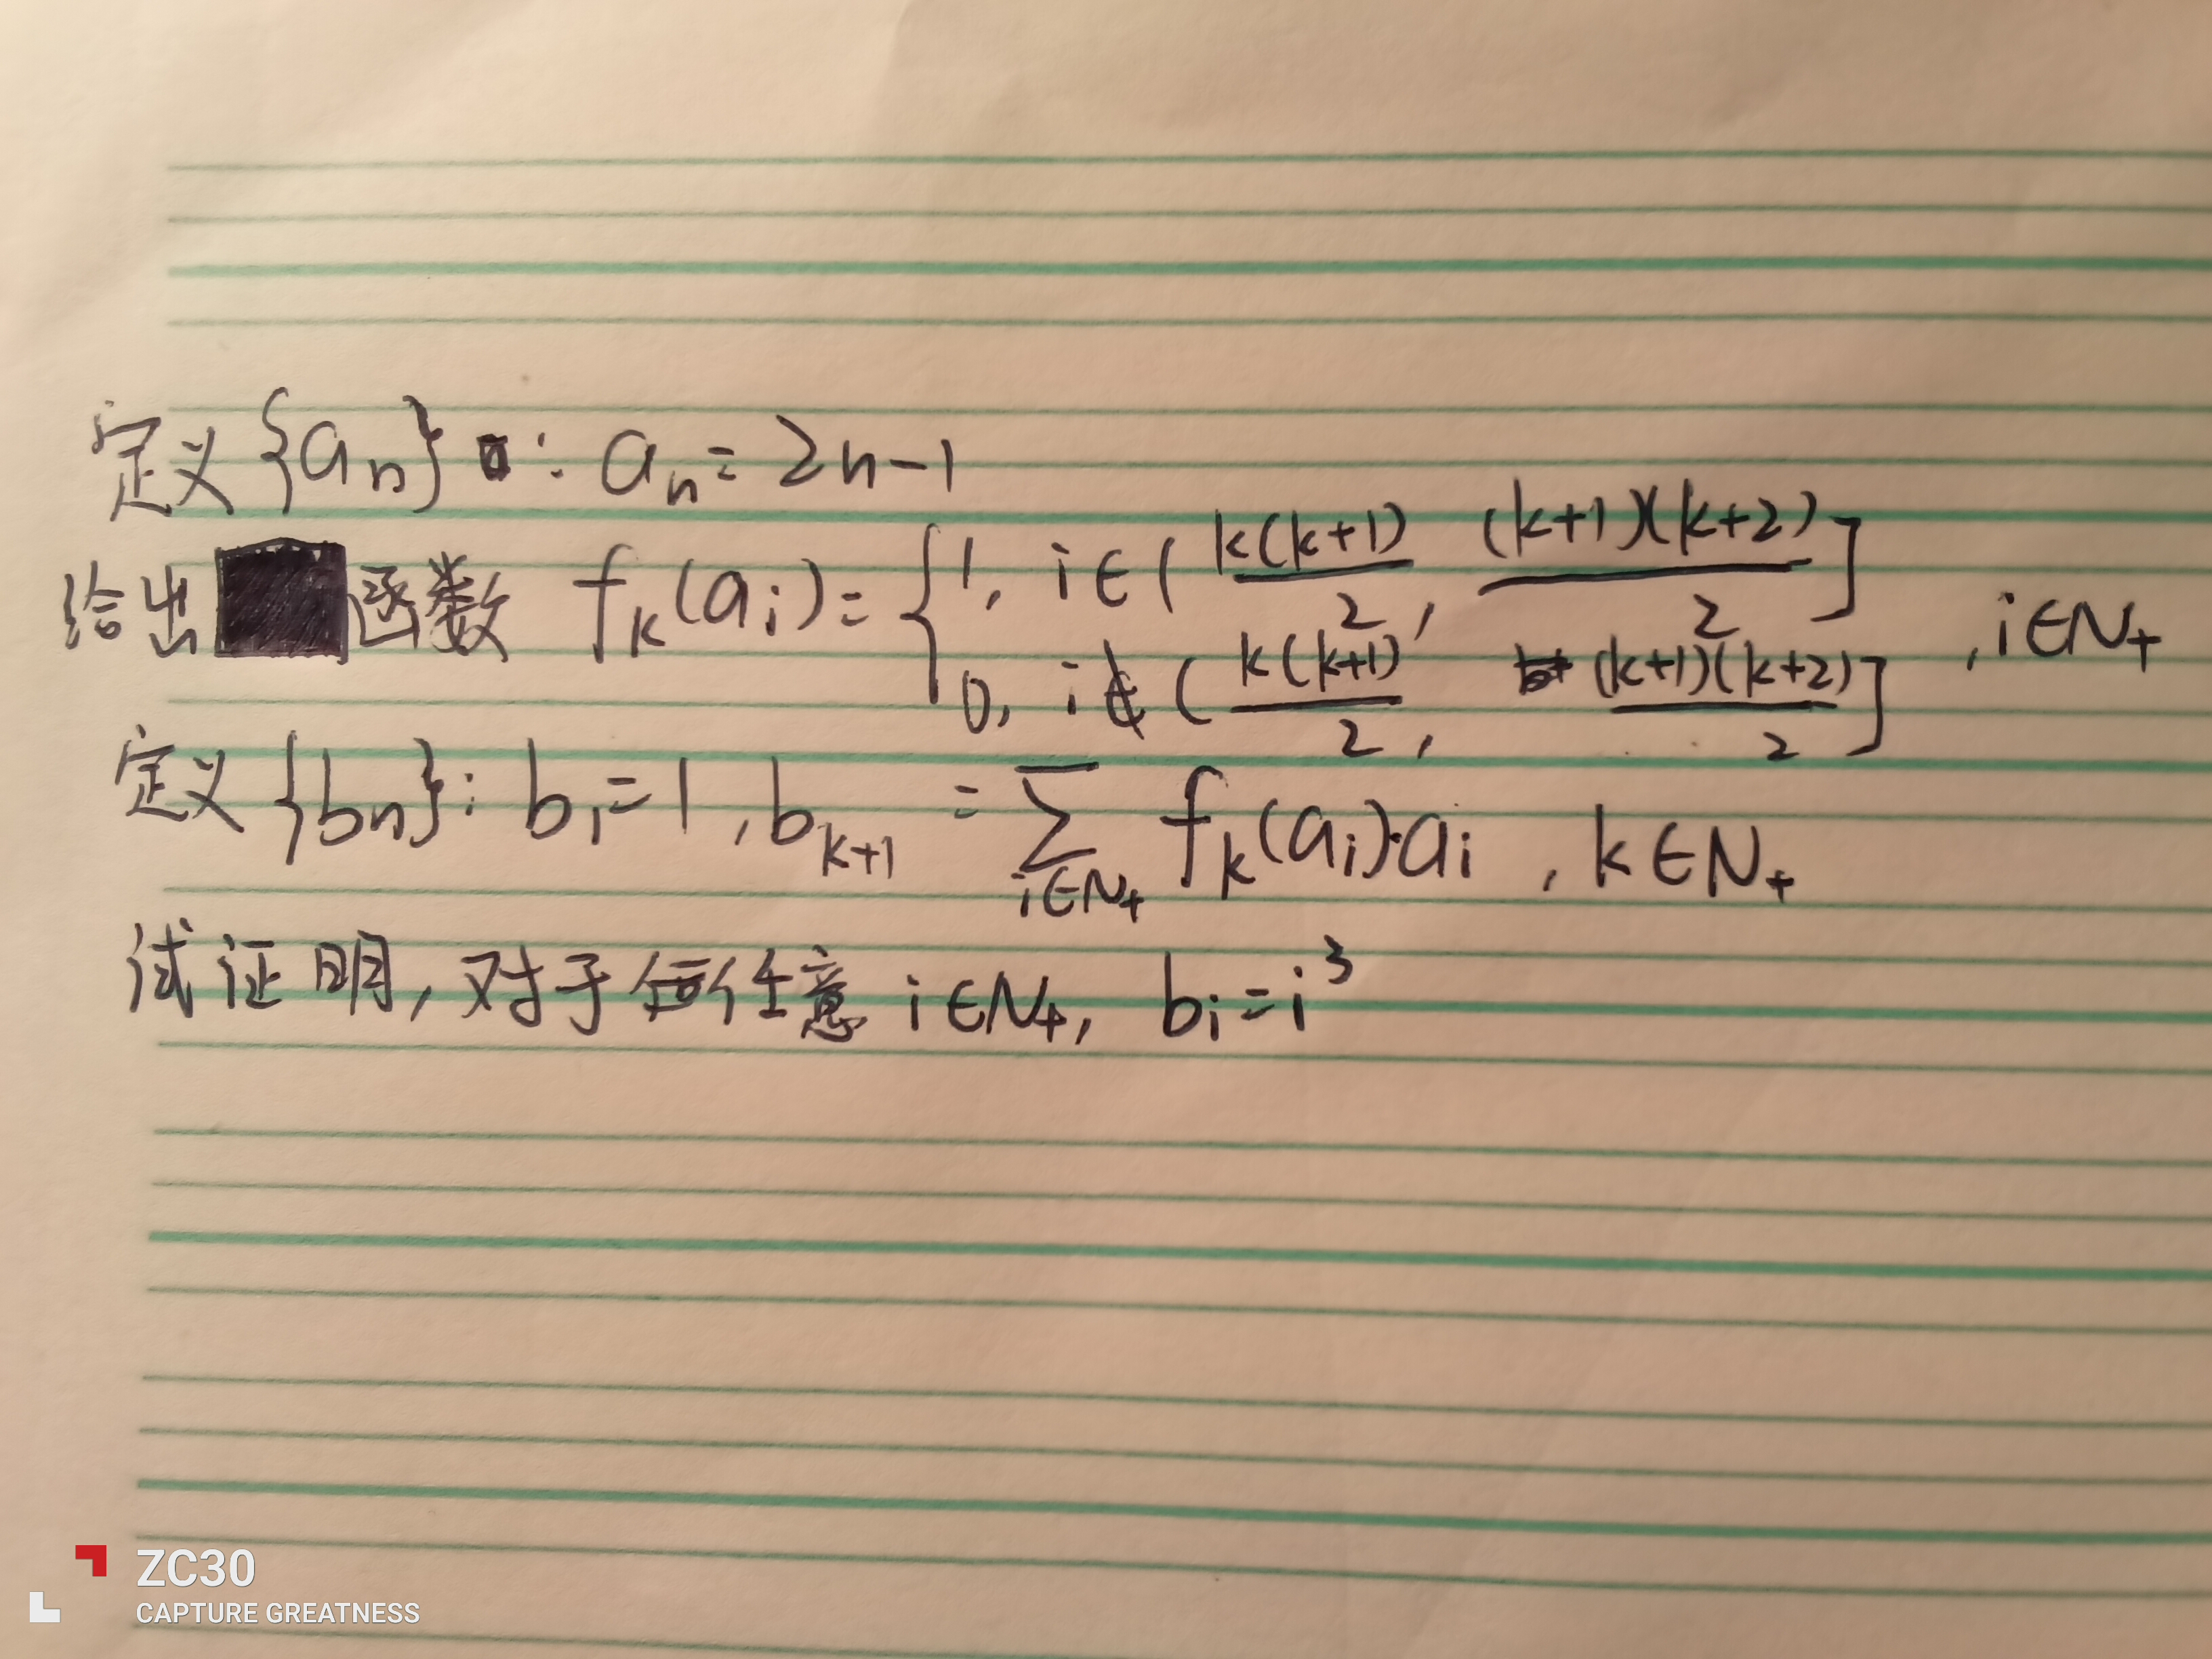 定义{aₙ}: aₙ = 2n-1
给出函数 fₖ(aᵢ) = { 1, i∈( k(k+1)/2, (k+1)(k+2)/2 ] , i∈N₊
0, i∉( k(k+1)/2, (k+1)(k+2)/2 ]
定义{bₙ}: b₁=1, bₖ₊₁ = ∑_{i∈N₊} fₖ(aᵢ)·aᵢ , k∈N₊
试证明,对于任意 i∈N₊, bᵢ=i³
ZC30
CAPTURE GREATNESS